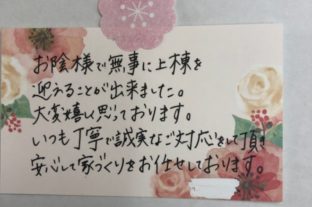 お陰様で無事に上棟を
迎えることが出来ました。
大変嬉しく思っております。
いつも丁寧で誠実なご対応をして頂き
安心して家づくりをお任せしております。